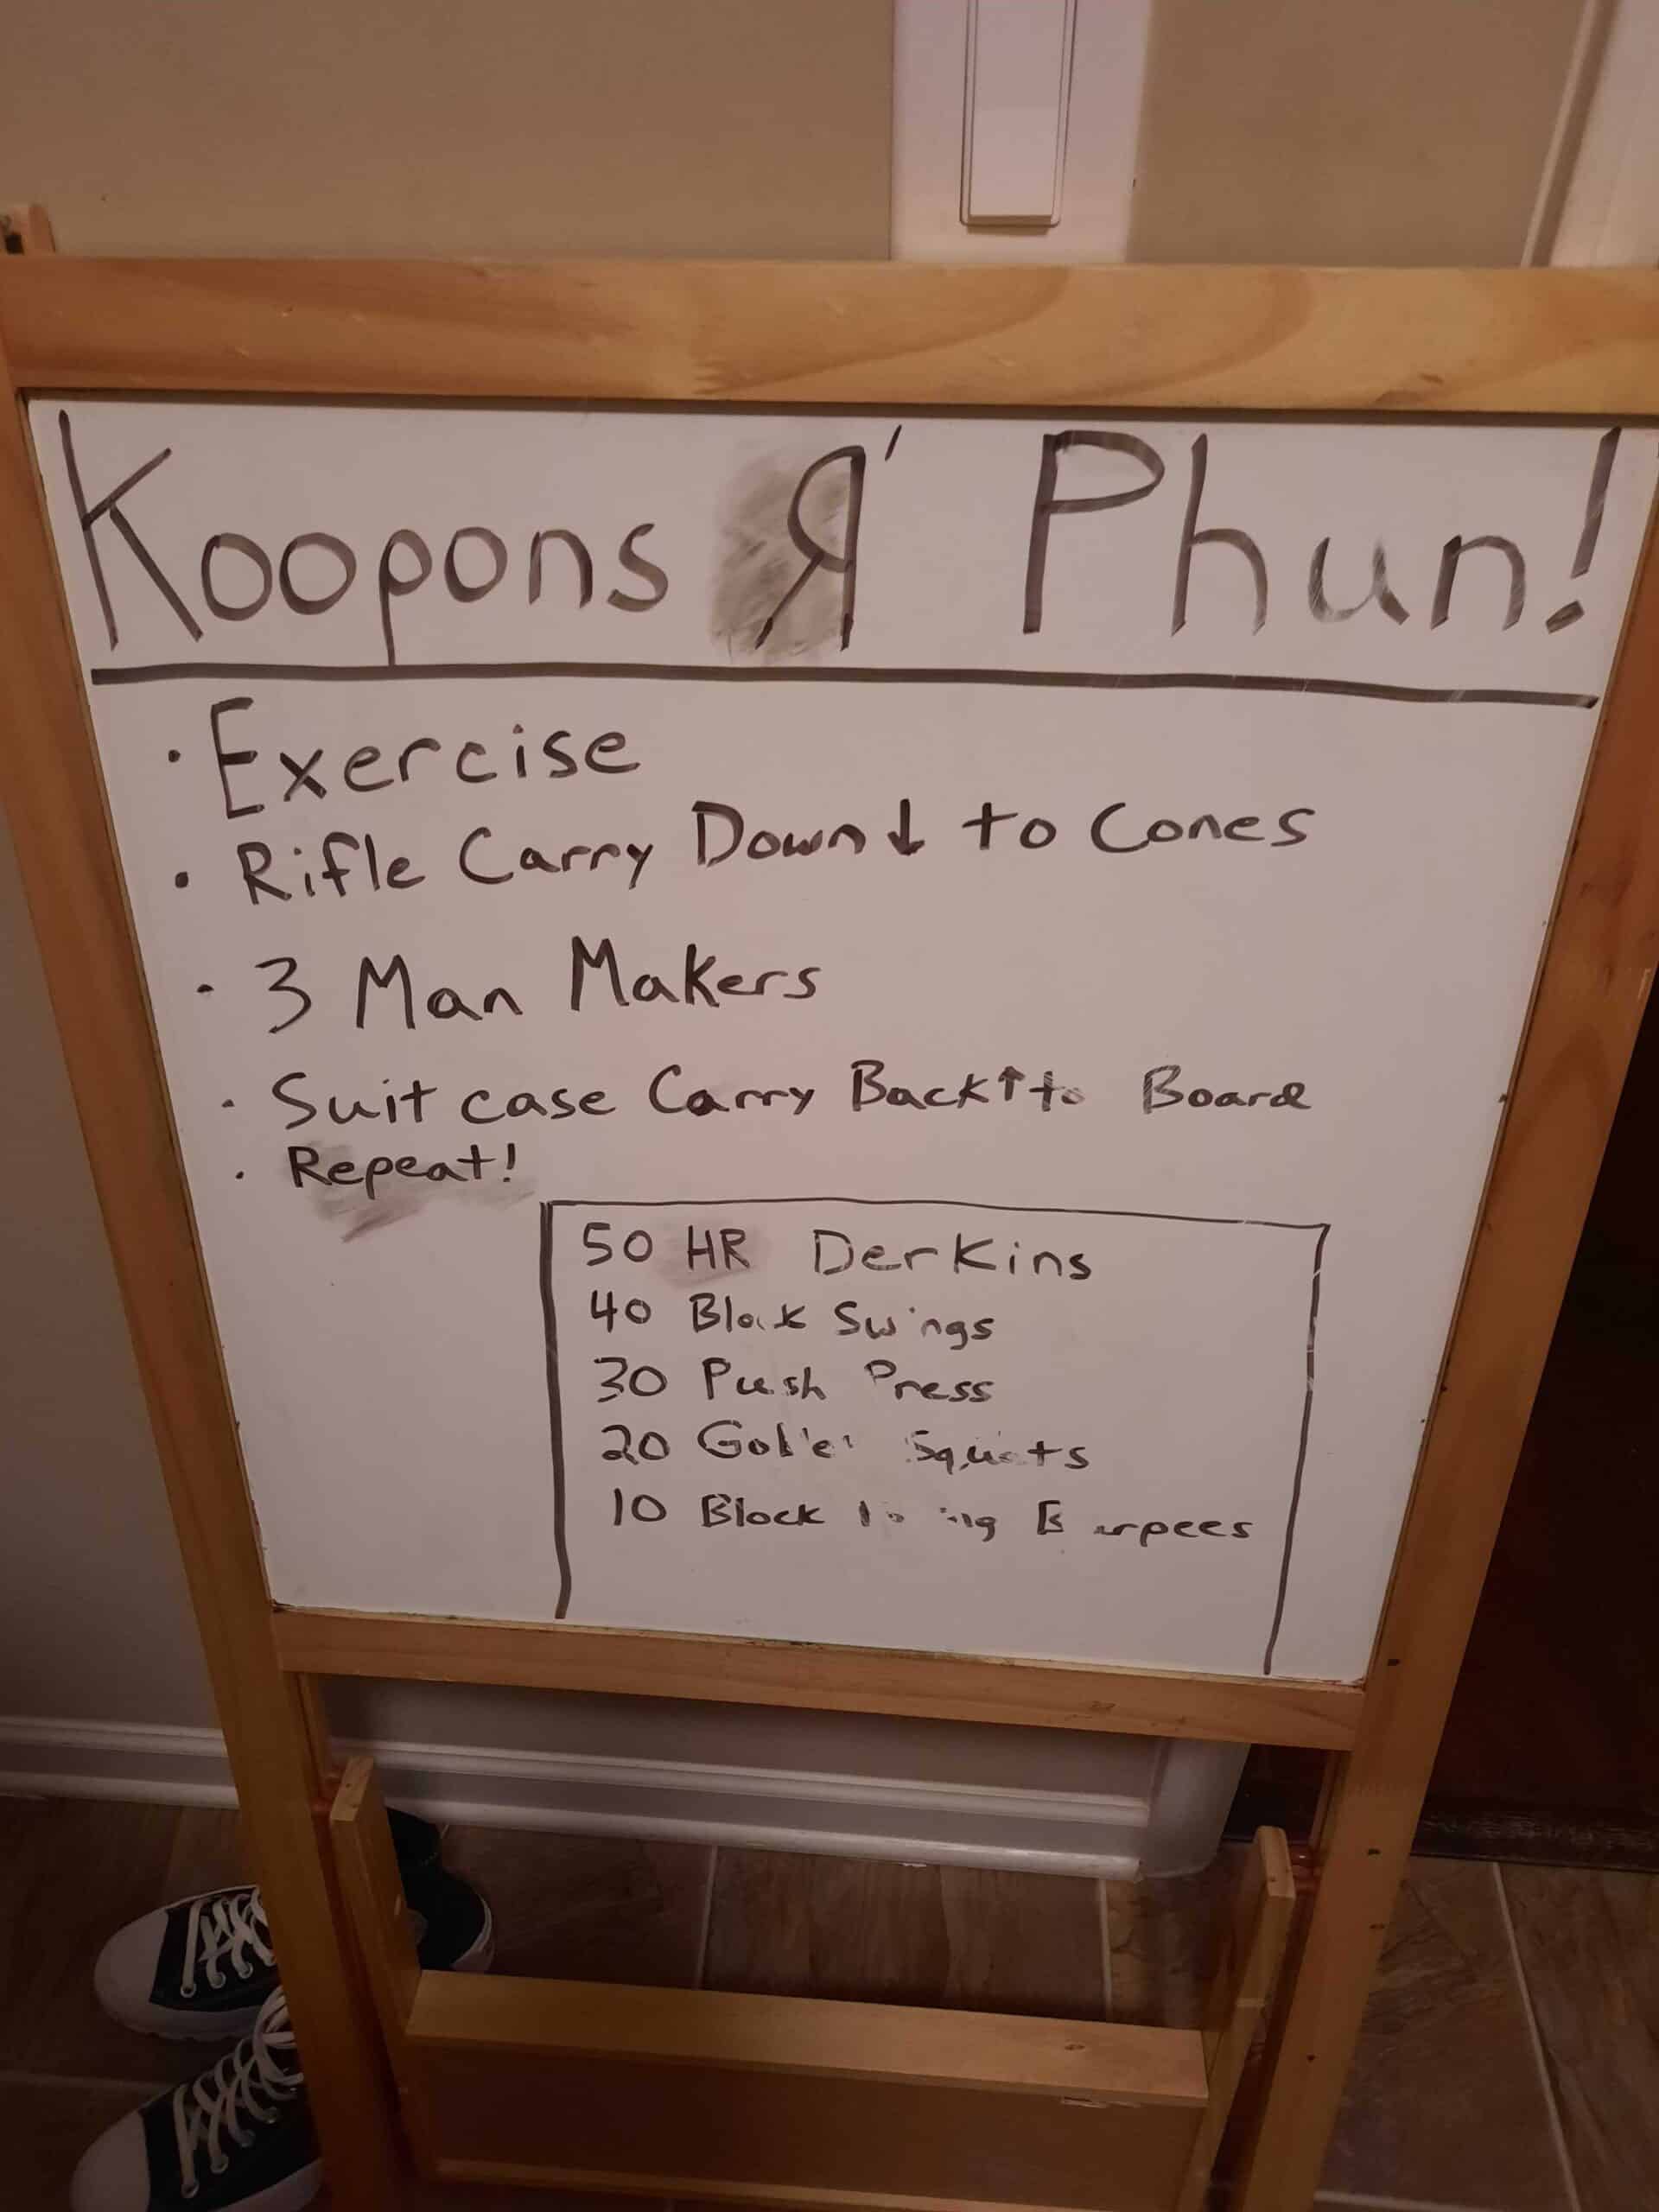 Koopons Я' Phun!
· Exercise
· Rifle Carry Down ↓ to Cones
· 3 Man Makers
· Suit case Carry Back ↑ to Board
· Repeat!
50 HR Derkins
40 Block Swings
30 Push Press
20 Goblet Squats
10 Block Burpees